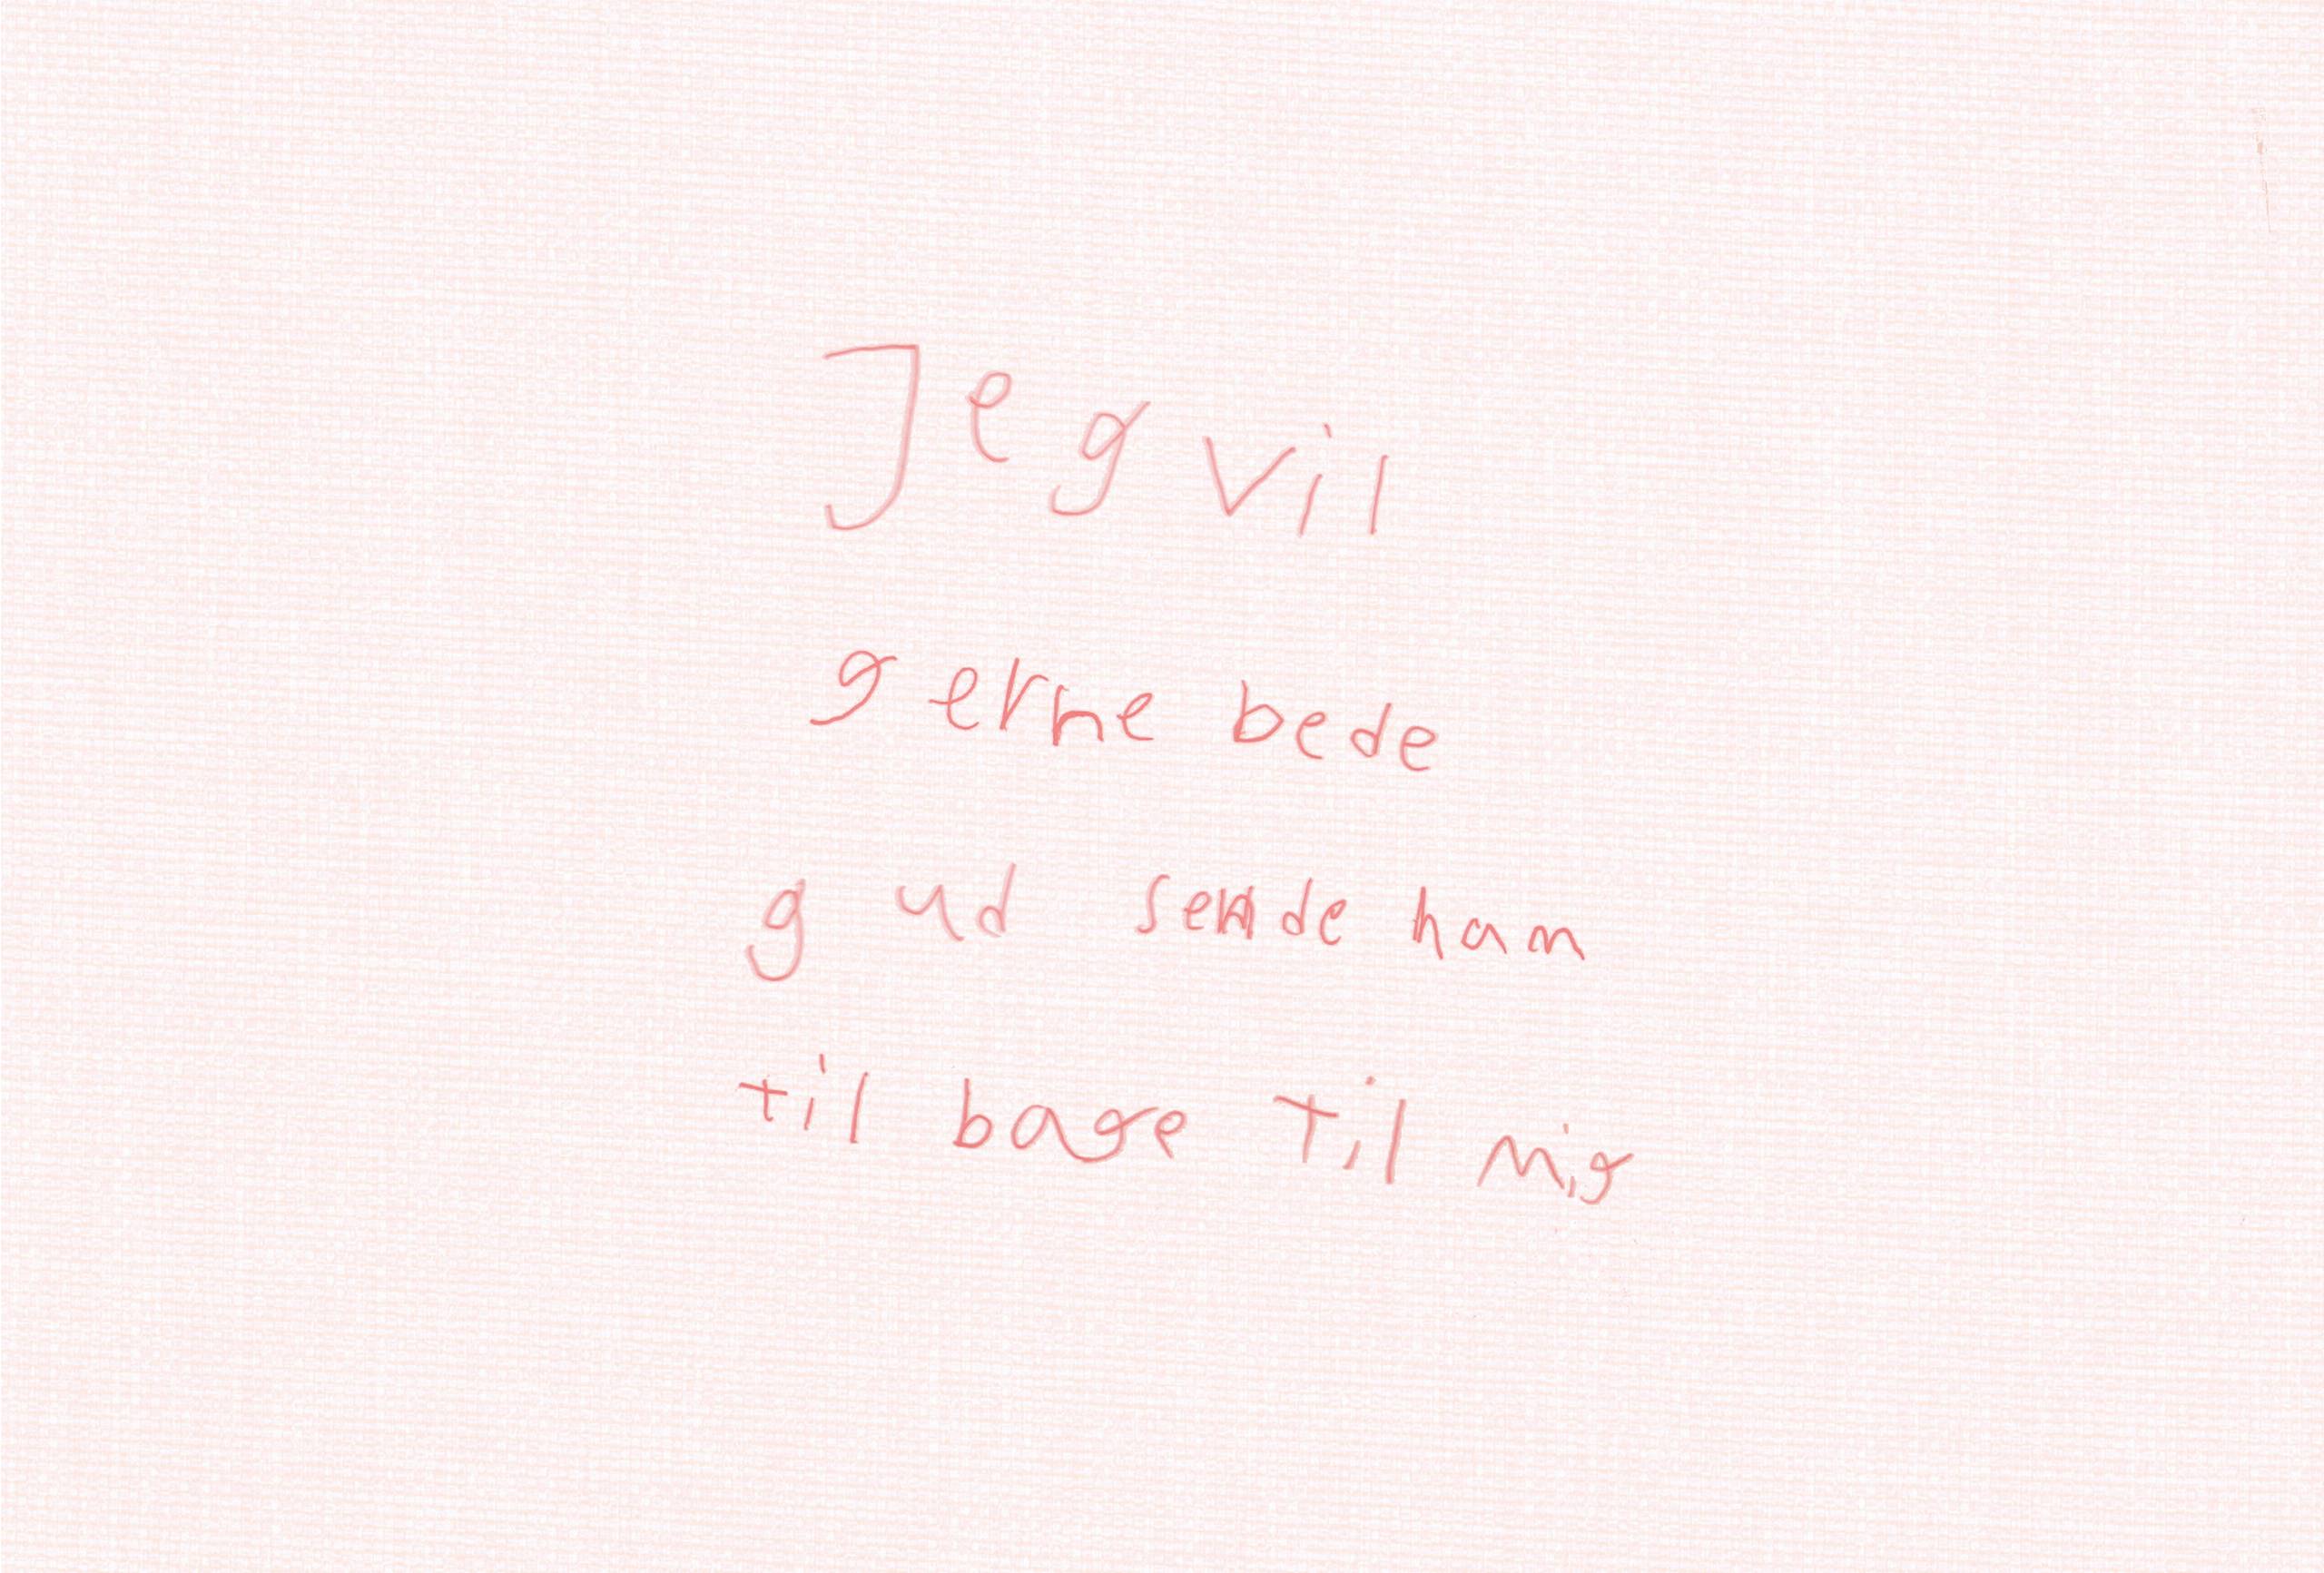 Jeg vil
gerne bede
gud sende ham
til bage til mig